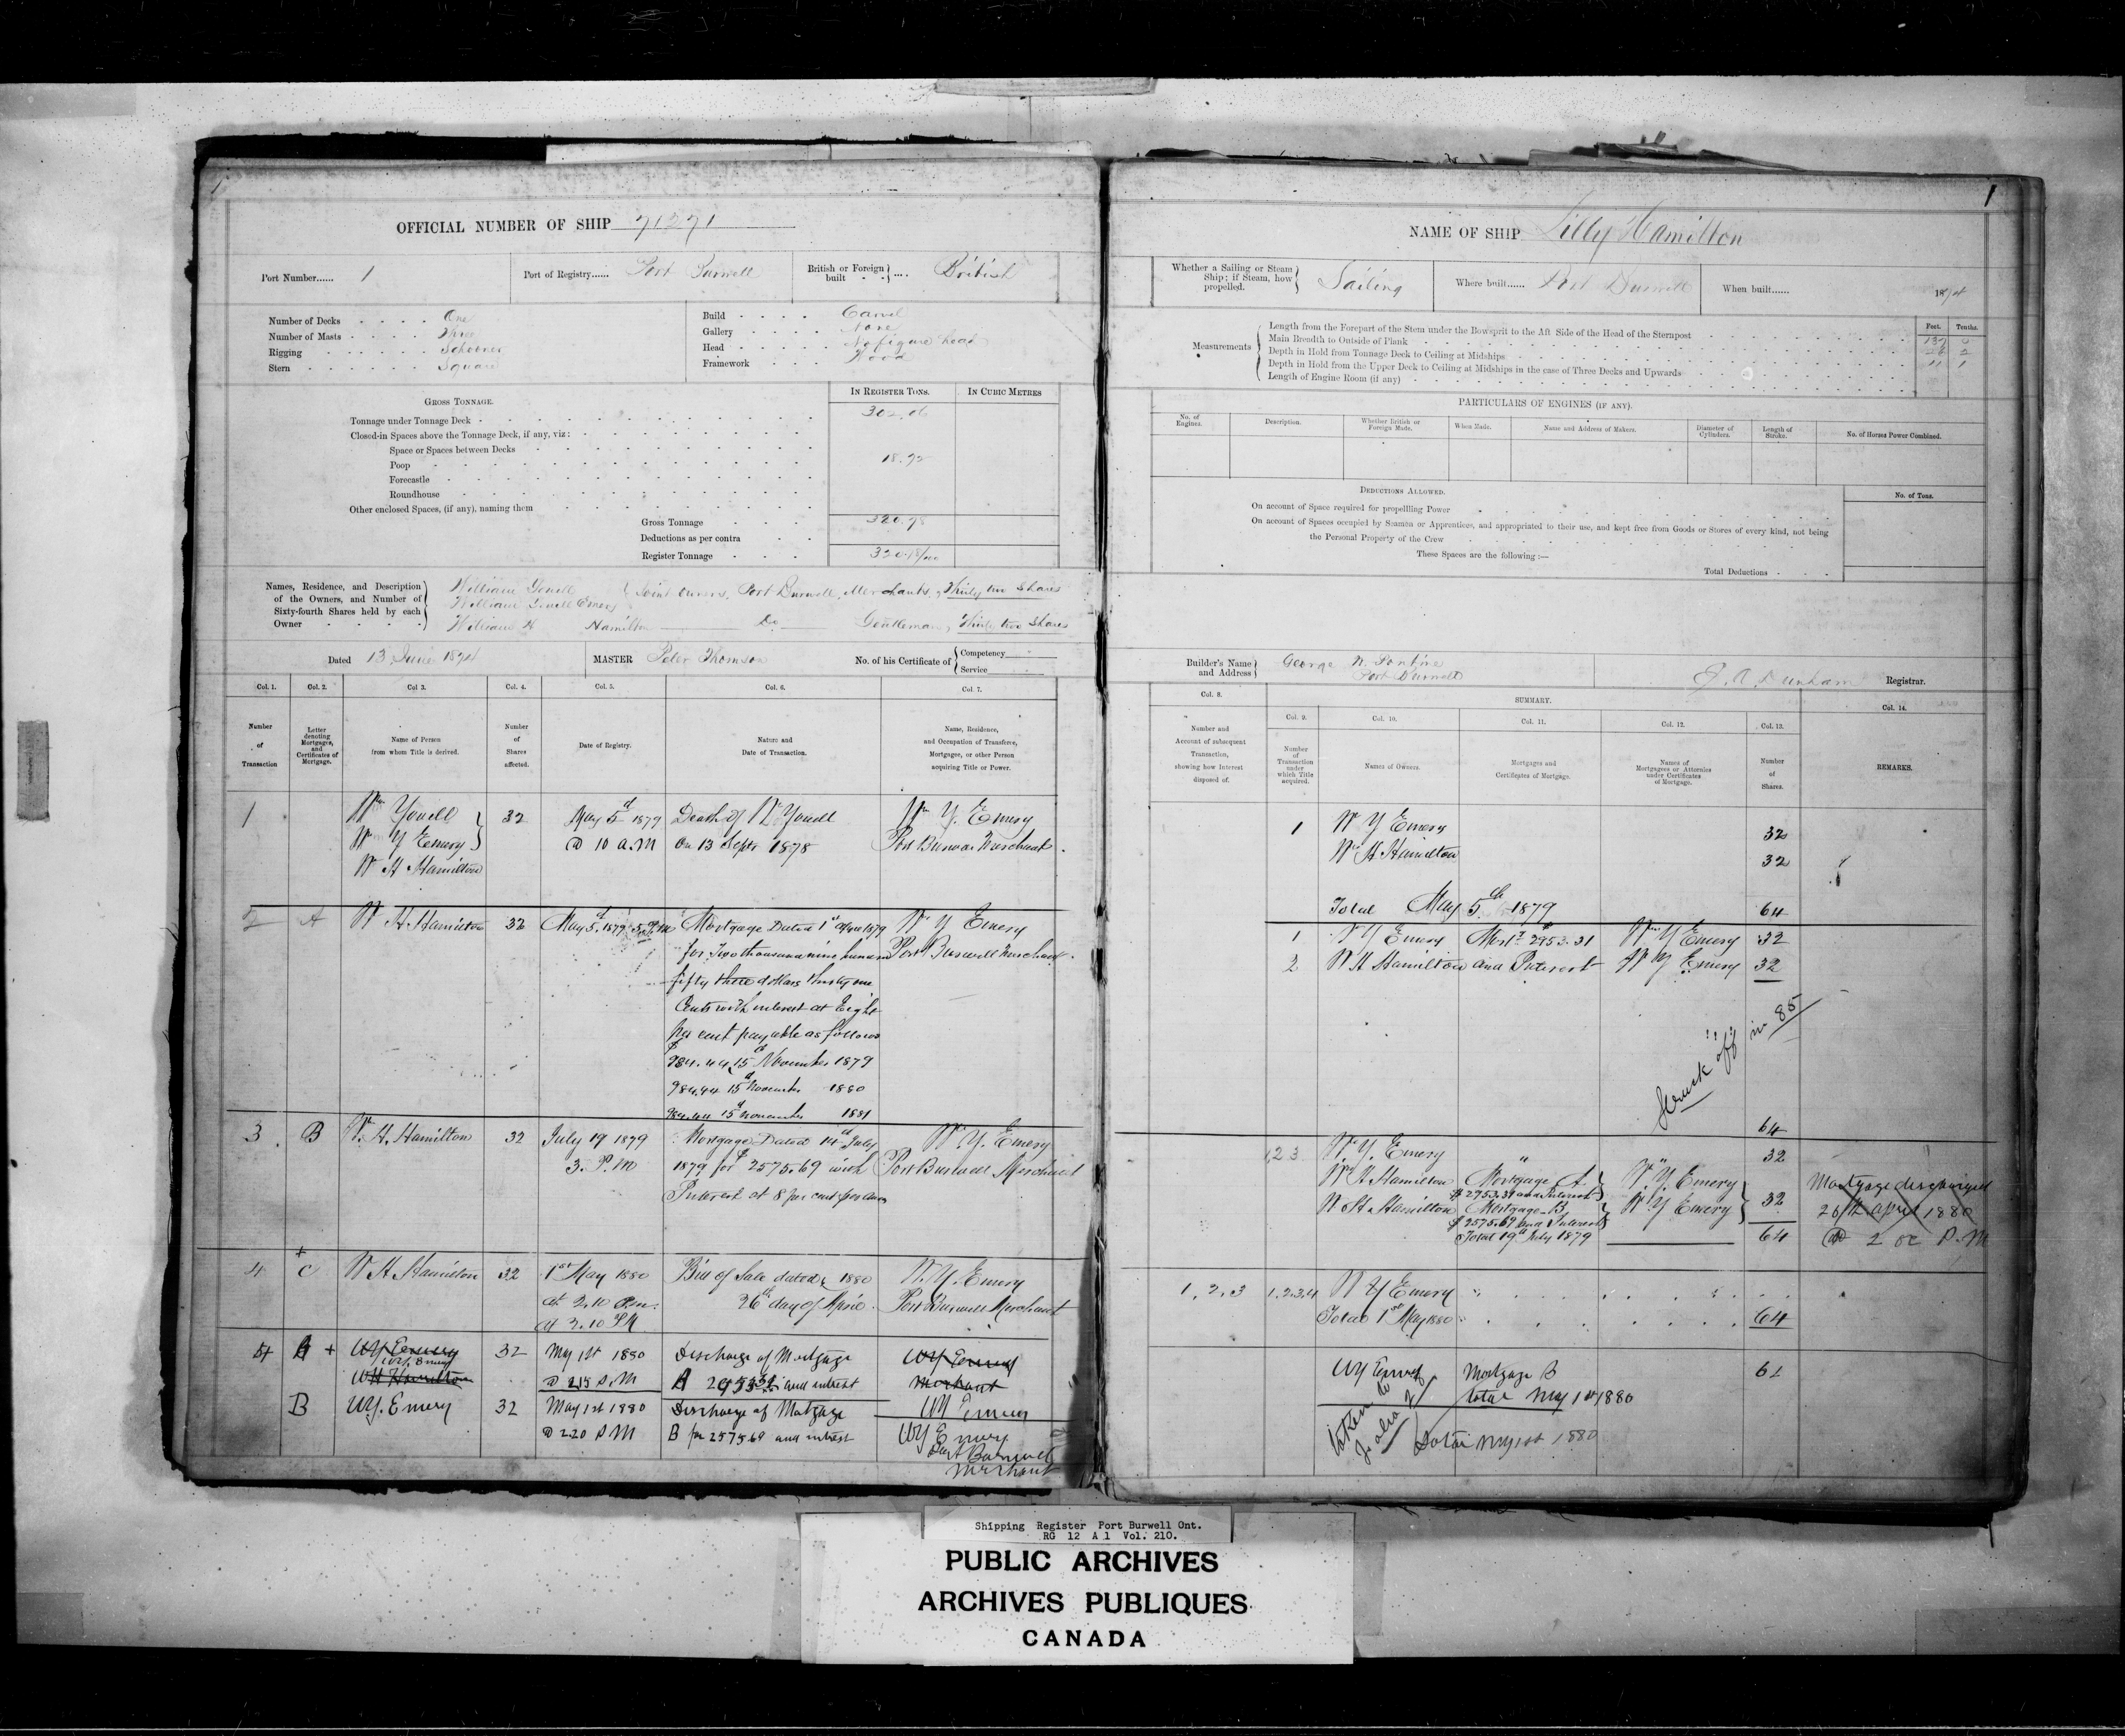 1
OFFICIAL NUMBER OF SHIP 71271
Port Number...... 1
Port of Registry...... Port Burwell
British or Foreign built .... British
Number of Decks One
Number of Masts Three
Rigging Schooner
Stern Square
Build Carvel
Gallery None
Head No figure head
Framework Wood
GROSS TONNAGE.
IN REGISTER TONS.
IN CUBIC METRES
Tonnage under Tonnage Deck 302.06
Closed-in Spaces above the Tonnage Deck, if any, viz:
Space or Spaces between Decks
Poop 18.92
Forecastle
Roundhouse
Other enclosed Spaces, (if any), naming them
Gross Tonnage 320.98
Deductions as per contra
Register Tonnage
Names, Residence, and Description of the Owners, and Number of Sixty-fourth Shares held by each Owner
William Youell
William Youell Emery
Joint owners, Port Burwell, Merchants, Thirty two Shares
William H Hamilton Do Gentleman, Thirty two Shares
Dated 13 June 1874
MASTER Peter Thomson
No. of his Certificate of Competency
Service
Col. 1.
Col. 2.
Col 3.
Col. 4.
Col. 5.
Col. 6.
Col. 7.
Number of Transaction
Letter denoting Mortgages, and Certificates of Mortgage.
Name of Person from whom Title is derived.
Number of Shares affected.
Date of Registry.
Nature and Date of Transaction.
Name, Residence, and Occupation of Transferee, Mortgagee, or other Person acquiring Title or Power.
1 Wm Youell 32 May 5th 1879 Death of W Youell Wm Y. Emery
W Y Emery @ 10 A.M On 13 Septr 1878 Port Burwell Merchant
W H Hamilton
2 A W H Hamilton 32 May 5th 1879 Mortgage Dated 1st 1879 W Y Emery
for Two thousand nine hundred Port Burwell Merchant
fifty three dollars thirty one
Cents with interest at Eight
per cent payable as follows
$984.44 15th November 1879
984.44 15th November 1880
984.44 15th November 1881
3 B W. H. Hamilton 32 July 19 1879 Mortgage Dated 14th July W Y. Emery
3. P.M 1879 for $2575.69 with Port Burwell Merchant
Interest at 8 per cent per
4 C W H Hamilton 32 1st May 1880 Bill of Sale dated 1880 W. Y. Emery
at 2.10 P.m. 26th day of April Port Burwell Merchant
at 2.10 PM
4 A + WY Emery 32 May 1st 1880 Discharge of Mortgage WY Emery
W.Y. Emery
WH Hamilton @ 2.15 P.M A 2953.31 and intrest Merchant
B W.Y. Emery 32 May 1st 1880 Discharge of Mortgage WY Emery
@ 2.20 P M B for 2575.69 and intrest WY Emery
Port Burwell
Merchant
1
NAME OF SHIP Lilly Hamilton
Whether a Sailing or Steam Ship; if Steam, how propelled. Sailing
Where built...... Port Burwell
When built...... 1874
Measurements
Feet. Tenths.
Length from the Forepart of the Stem under the Bowsprit to the Aft Side of the Head of the Sternpost 137 0
Main Breadth to Outside of Plank 26 2
Depth in Hold from Tonnage Deck to Ceiling at Midships 11 1
Depth in Hold from the Upper Deck to Ceiling at Midships in the case of Three Decks and Upwards
Length of Engine Room (if any)
PARTICULARS OF ENGINES (IF ANY).
No. of Engines.
Description.
Whether British or Foreign Made.
When Made.
Name and Address of Makers.
Diameter of Cylinders.
Length of Stroke.
No. of Horses Power Combined.
DEDUCTIONS ALLOWED.
No. of Tons.
On account of Space required for propellling Power
On account of Spaces occupied by Seamen or Apprentices, and appropriated to their use, and kept free from Goods or Stores of every kind, not being
the Personal Property of the Crew
These Spaces are the following :—
Total Deductions
Builder's Name and Address
George
Port Burwell
Registrar.
Col. 8.
SUMMARY.
Col. 9.
Col. 10.
Col. 11.
Col. 12.
Col. 13.
Col. 14.
Number and Account of subsequent Transaction, showing how Interest disposed of.
Number of Transaction under which Title acquired.
Names of Owners.
Mortgages and Certificates of Mortgage.
Names of Mortgagees or Attornies under Certificates of Mortgage.
Number of Shares.
REMARKS.
1 W Y Emery 32
W H Hamilton 32
Total May 5th 1879 64
1 W Y Emery Mort $2953.31 Wm Y Emery 32
2 W H Hamilton and Interest W Y Emery 32
Struck off in 85
64
1,2 3 W. Y. Emery " " 32
W H Hamilton Mortgage A W. Y. Emery Mortgage discharged
$2953.31 and Interest
W H. Hamilton Mortgage B W Y Emery 32 26th april 1880
$2575.69 and Interest
Total 19th July 1879 64 @ 2 oc P.M
1, 2, 3 1,2,3,4 W Y Emery
Total 1st May 1880 64
WY Emery Mortgage B 61
total May 1st 1880
taken to folio 2
Total May 1st 1880
Shipping Register Port Burwell Ont.
RG 12 A 1 Vol. 210.
PUBLIC ARCHIVES
ARCHIVES PUBLIQUES
CANADA